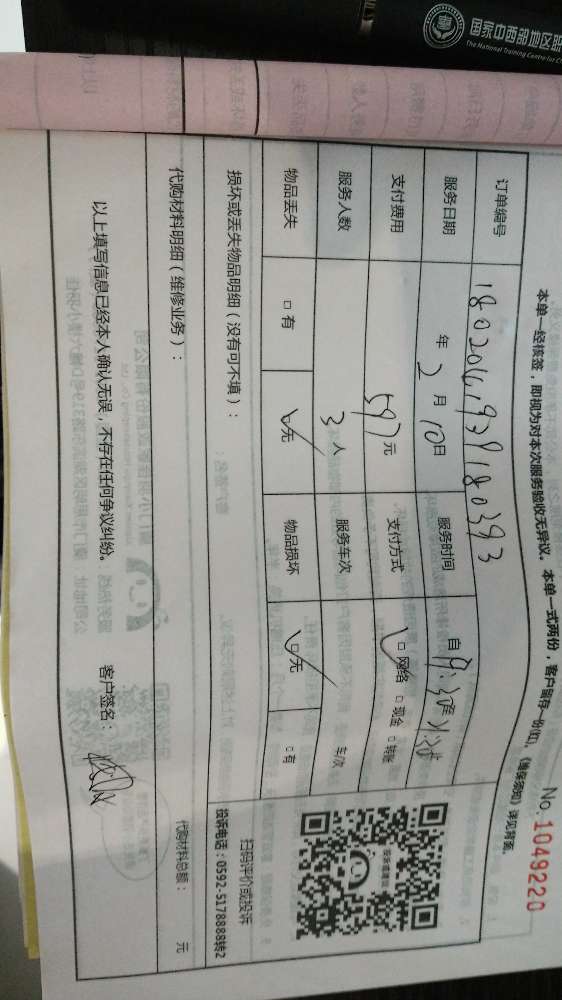 国家中西部地区
The National Training Centre for C
本单一经核签，即视为对本次服务验收无异议。 本单一式两份，客户留存一份(红)。《维保须知》详见背面。
No. 1049220
订单编号
服务日期 年 2 月 10 日 服务时间 自
支付费用 597 元 支付方式 □ 网络 □ 现金 □ 转账
服务人数 3 人 服务车次 车次
物品丢失 □ 有 □ 无 物品损坏 □ 无 □ 有
损坏或丢失物品明细（没有可不填）：
扫码评价或投诉
投诉电话：0592-5178888转2
代购材料明细（维修业务）：
代购材料总额： 元
以上填写信息已经本人确认无误，不存在任何争议纠纷。 客户签名：